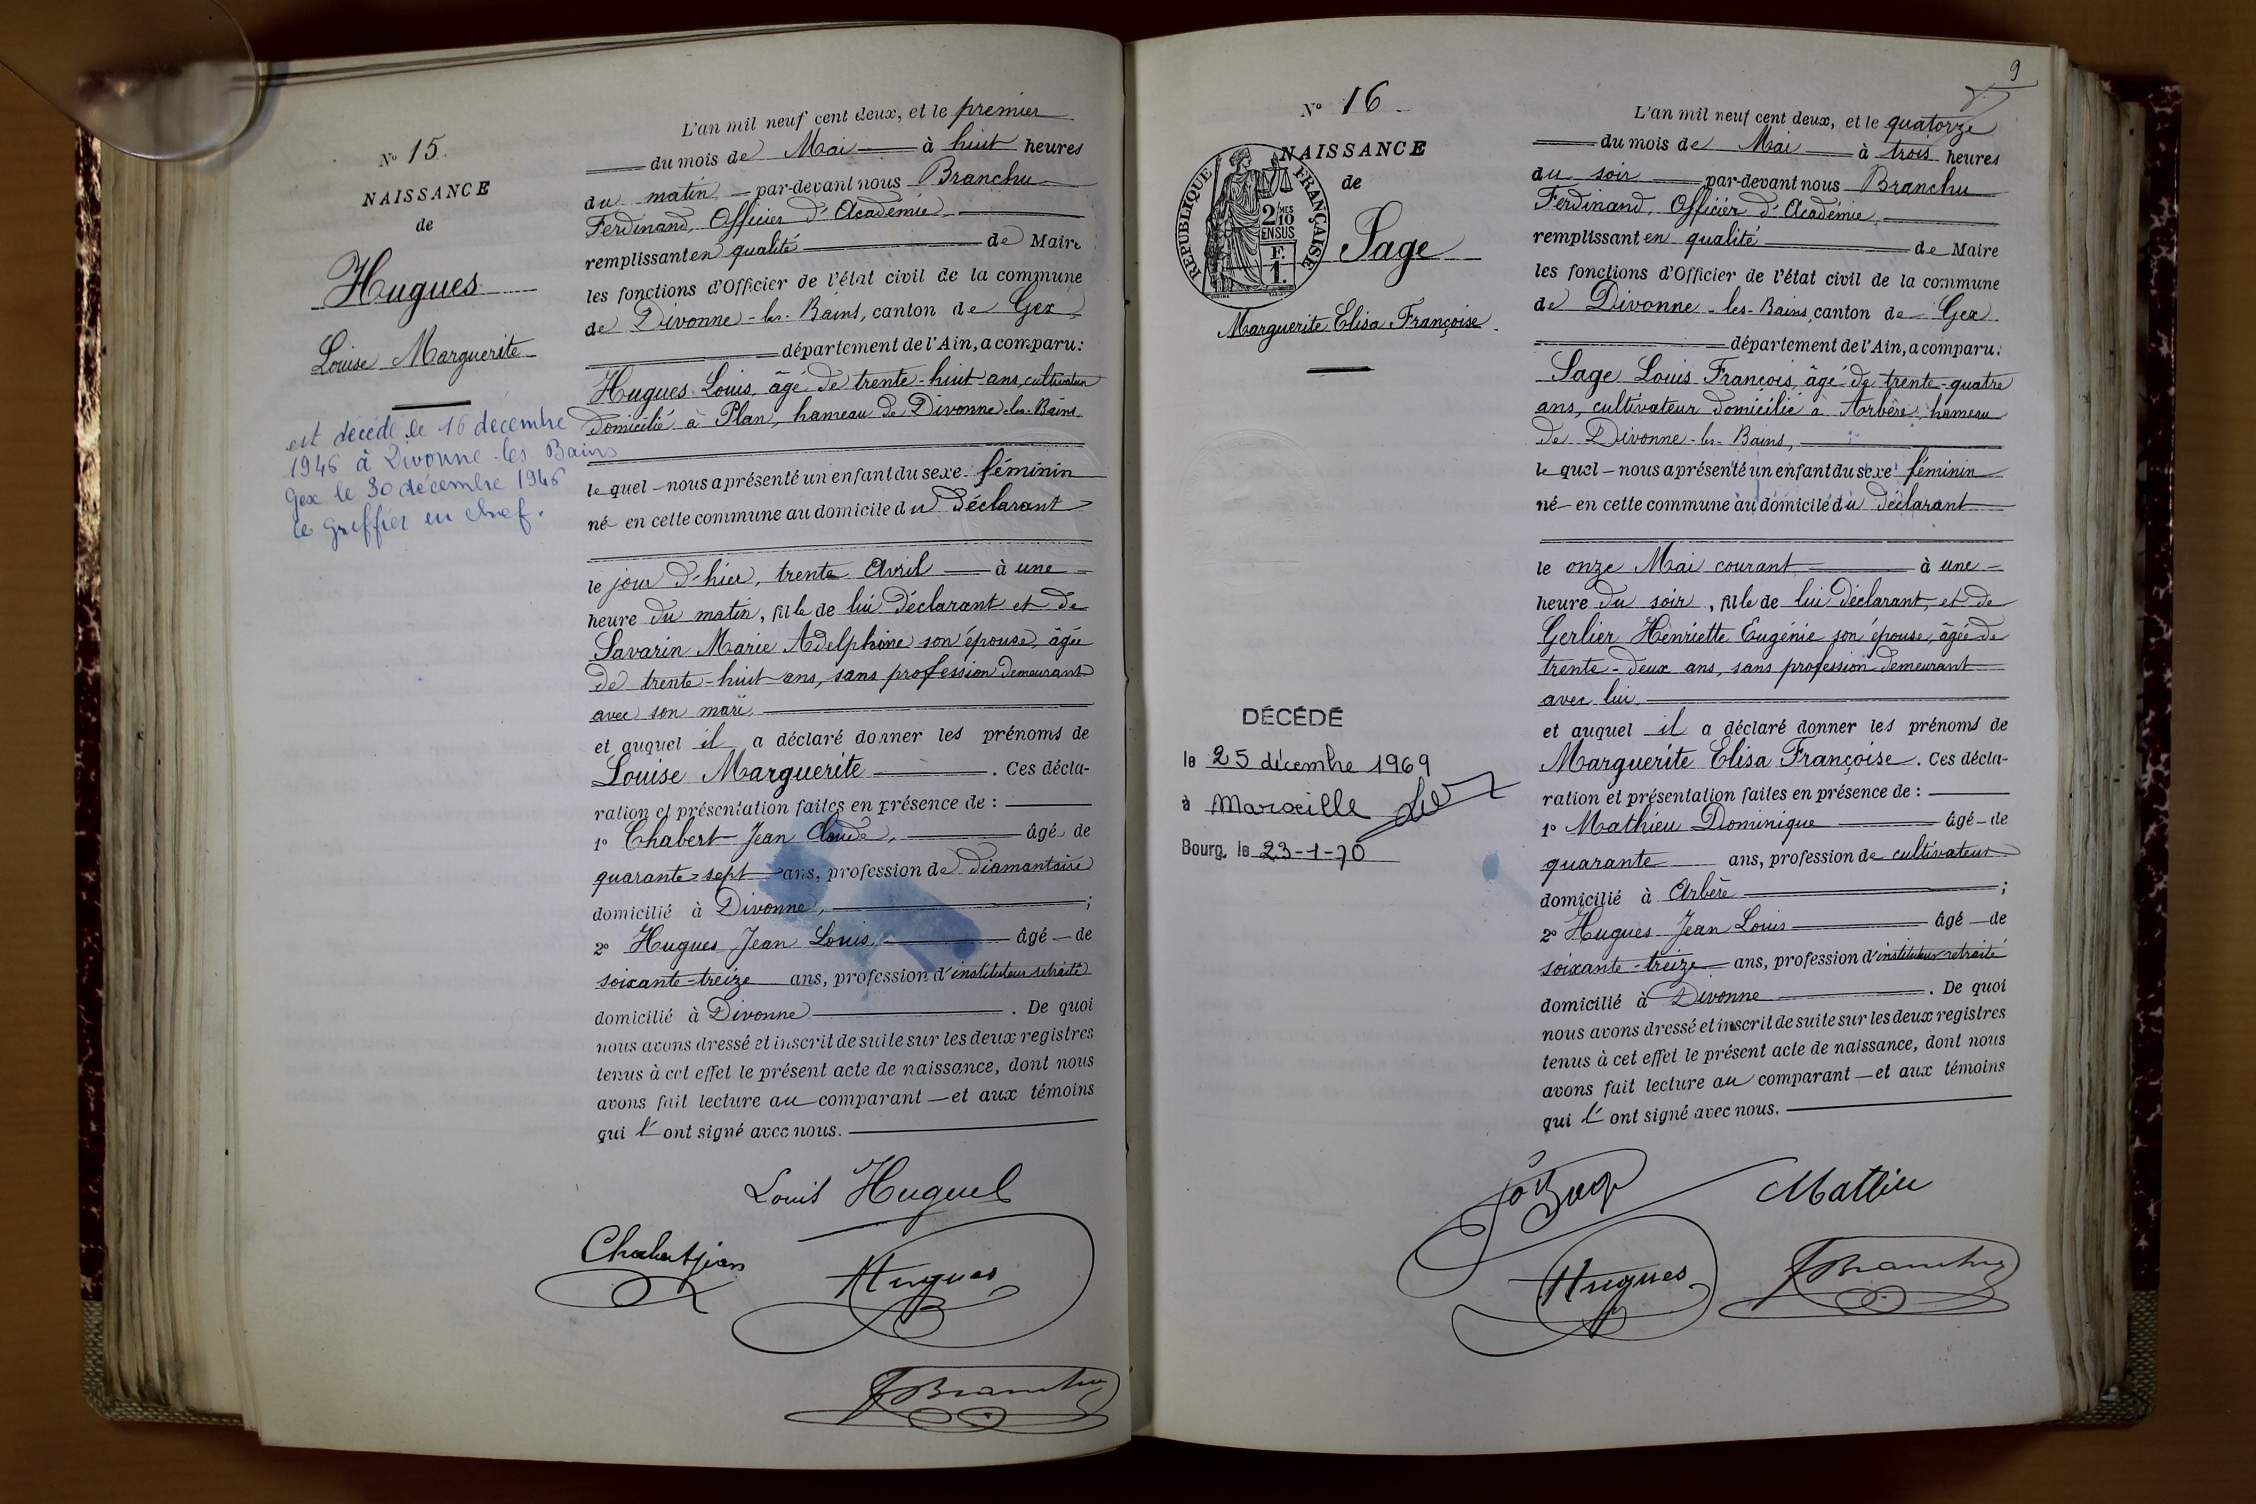 N° 15.
NAISSANCE
de
Hugues
Louise Marguerite
est décédé le 16 décembre
1946 à Divonne-les Bains
Gex le 30 décembre 1946
le Greffier en chef.
L'an mil neuf cent deux, et le premier
du mois de Mai à huit heures
du matin par-devant nous Branchu
Ferdinand, Officier d'Académie
remplissant en qualité de Maire
les fonctions d'Officier de l'état civil de la commune
de Divonne-les-Bains, canton de Gex
département de l'Ain, a comparu:
Hugues Louis, âgé de trente-huit ans, cultivateur
domicilié à Plan, hameau de Divonne-les-Bains
le quel nous a présenté un enfant du sexe féminin
né en cette commune au domicile du déclarant
le jour d'hier, trente Avril à une
heure du matin, fille de lui déclarant et de
Savarin Marie Adelphine son épouse, âgée
de trente-huit ans, sans profession demeurant
avec son mari.
et auquel il a déclaré donner les prénoms de
Louise Marguerite. Ces décla-
ration et présentation faites en présence de :
1° Chabert Jean Claude, âgé de
quarante-sept ans, profession de diamantaire
domicilié à Divonne, ;
2° Hugues Jean Louis, âgé de
soixante-treize ans, profession d'instituteur retraité
domicilié à Divonne. De quoi
nous avons dressé et inscrit de suite sur les deux registres
tenus à cet effet le présent acte de naissance, dont nous
avons fait lecture au comparant et aux témoins
qui l'ont signé avec nous.
Louis Hugues
Chabert jean
Hugues
F Branchu
9
N° 16
NAISSANCE
de
RÉPUBLIQUE FRANÇAISE
2/10MES
EN SUS
F.
1.
Sage
Marguerite Elisa Françoise.
DÉCÉDÉ
le 25 décembre 1969
à Marseille
Bourg, le 23-1-70
L'an mil neuf cent deux, et le quatorze
du mois de Mai à trois heures
du soir par-devant nous Branchu
Ferdinand, Officier d'Académie,
remplissant en qualité de Maire
les fonctions d'Officier de l'état civil de la commune
de Divonne-les-Bains, canton de Gex
département de l'Ain, a comparu:
Sage Louis François, âgé de trente-quatre
ans, cultivateur domicilié à Arbère, hameau
de Divonne-les-Bains,
le quel nous a présenté un enfant du sexe féminin
né en cette commune au domicile du déclarant
le onze Mai courant à une
heure du soir, fille de lui déclarant, et de
Gerlier Henriette Eugénie son épouse, âgée de
trente-deux ans, sans profession demeurant
avec lui
et auquel il a déclaré donner les prénoms de
Marguerite Elisa Françoise. Ces décla-
ration et présentation faites en présence de :
1° Mathieu Dominique âgé de
quarante ans, profession de cultivateur
domicilié à Arbère ;
2° Hugues Jean Louis âgé de
soixante-treize ans, profession d'instituteur retraité
domicilié à Divonne. De quoi
nous avons dressé et inscrit de suite sur les deux registres
tenus à cet effet le présent acte de naissance, dont nous
avons fait lecture au comparant et aux témoins
qui l'ont signé avec nous.
Mathieu
Hugues
F Branchu